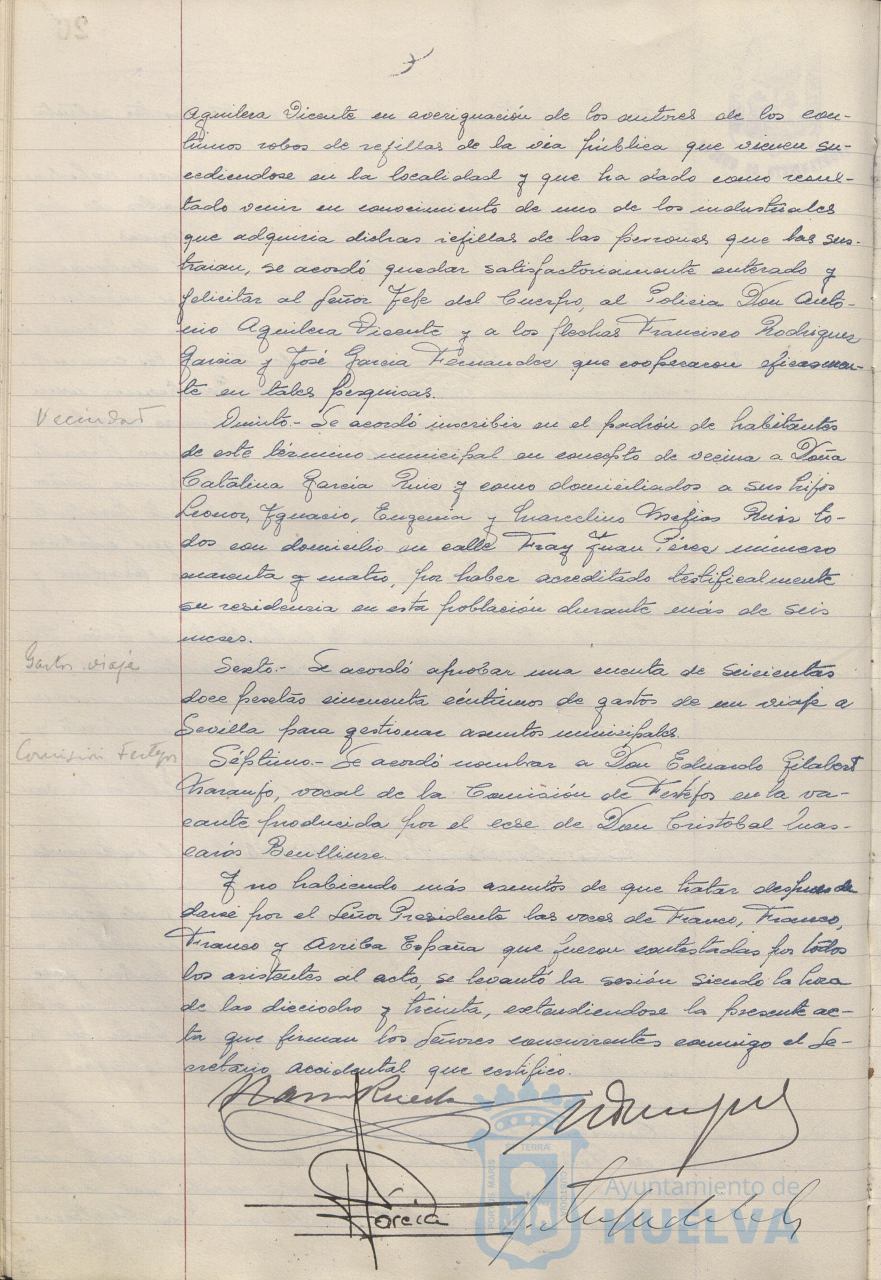 Aguilera Vicente en averiguación de los autores de los con-
tinuos robos de rejillas de la via pública que vienen su-
cediendose en la localidad y que ha dado como resul-
tado venir en conocimiento de uno de los industriales
que adquiria dichas rejillas de las personas que las sus-
traian, se acordó quedar satisfactoriamente enterado y
felicitar al Señor Jefe del Cuerpo, al Policia Don Anto-
nio Aguilera Vicente y a los flechas Francisco Rodriguez
Garcia y José Garcia Fernandez que cooperaron eficazmen-
te en tales pesquisas.
Vecindad
Quinto.- Se acordó inscribir en el padrón de habitantes
de este término municipal en concepto de vecina a Doña
Catalina Garcia Ruiz y como domiciliados a sus hijos
Leonor, Ygnacio, Eugenia y Marcelino Ruiz to-
dos con domicilio en calle Fray Juan Pérez número
cuarenta y cuatro, por haber acreditado testificalmente
su residencia en esta población durante más de seis
meses.
Gastos viaje
Sexto.- Se acordó aprobar una cuenta de seiscientas
doce pesetas cincuenta céntimos de gastos de un viaje a
Sevilla para gestionar asuntos municipales.
Comisión Festejos
Séptimo.- Se acordó nombrar a Don Eduardo Gilabert
Naranjo, vocal de la Comisión de Festejos en la va-
cante producida por el cese de Don Cristobal Mas-
carós Benlliure.
Y no habiendo más asuntos de que tratar despues de
darse por el Señor Presidente las voces de Franco, Franco,
Franco y Arriba España que fueron contestadas por todos
los asistentes al acto, se levantó la sesión siendo la hora
de las dieciocho y treinta, extendiendose la presente ac-
ta que firman los Señores concurrentes conmigo el Se-
cretario accidental que certifico.
Garcia
Ayuntamiento de
HUELVA